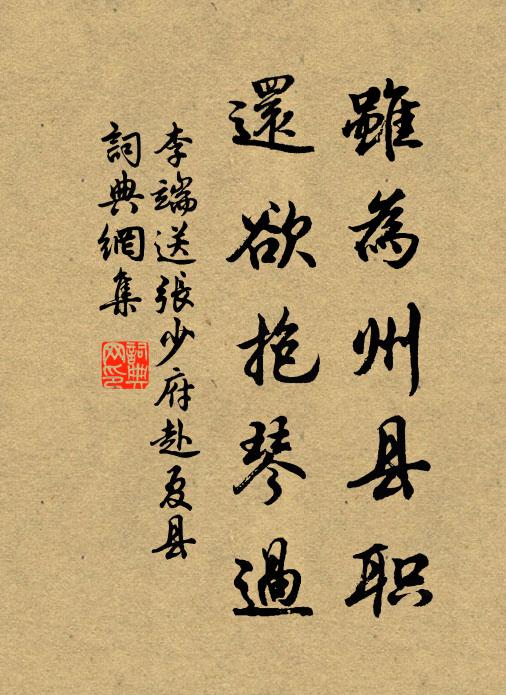 雖為州县职
還欲抱琴過
李端送張少府赴夏县
詞典網集
詞典
网印